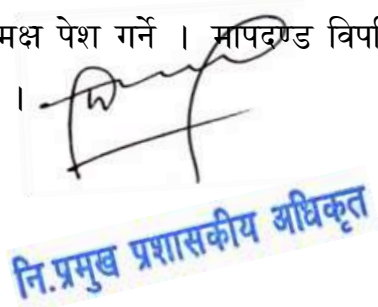 मक्ष पेश गर्ने । मापदण्ड विपरि
।
नि.प्रमुख प्रशासकीय अधिकृत